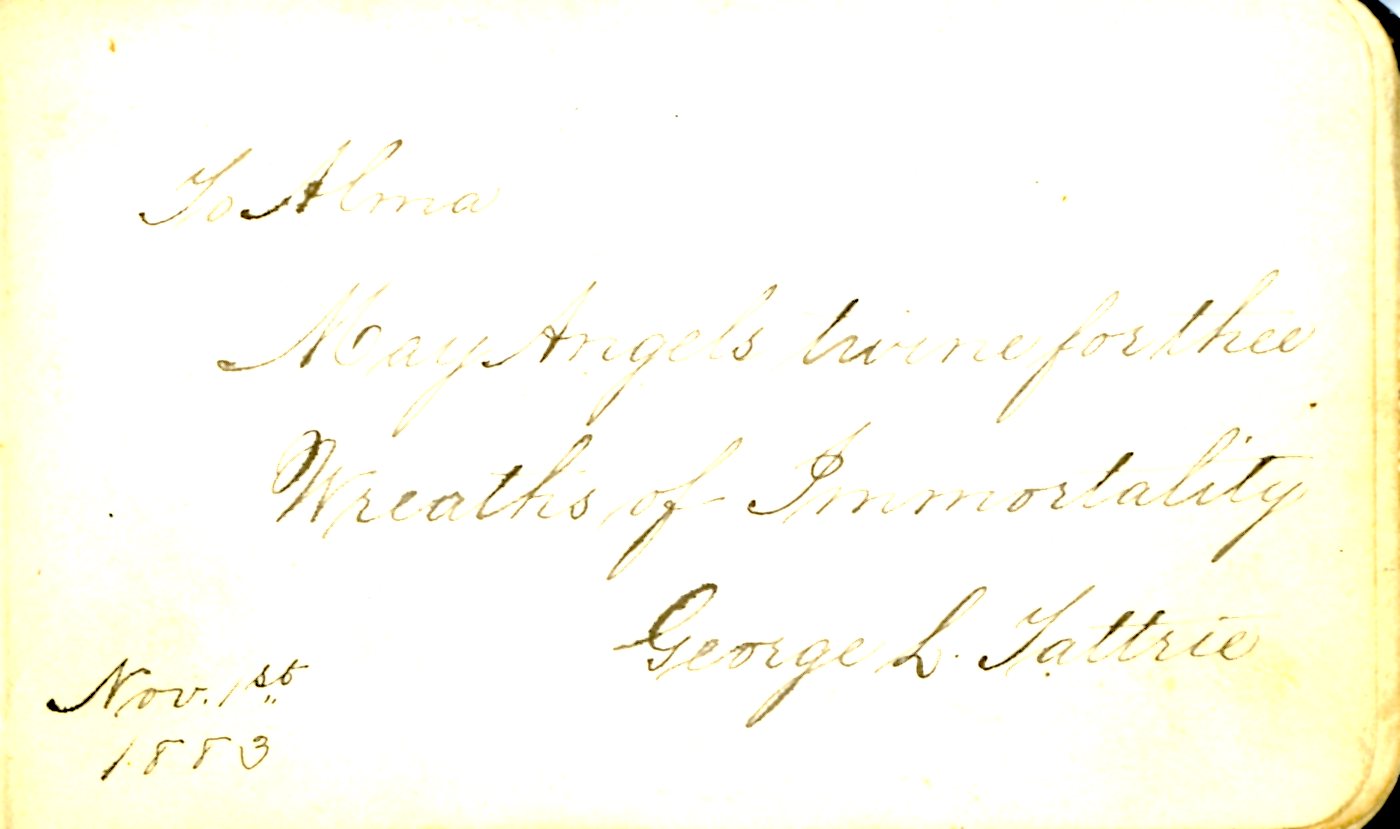 To Alma
May Angels twine for thee
Wreaths of Immortality
George L. Tattrie
Nov. 1st
1883